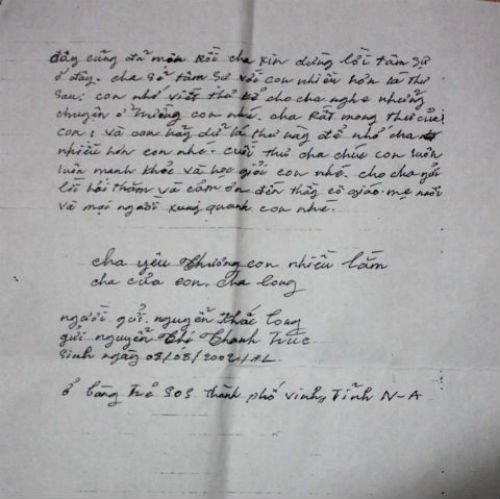 đây cũng đã muộn rồi cha xin dừng lời tâm sự
ở đây. cha sẽ tâm sự với con nhiều hơn lá thư
sau; con nhớ viết thư kể cho cha nghe những
chuyện ở trường con nhé. cha rất mong thư của
con; và con hãy dữ lá thư này để nhớ cha
nhiều hơn con nhé. cuối thư cha chúc con luôn
luôn mạnh khỏe và học giỏi con nhé. cho cha gửi
lời hỏi thăm và cảm ơn đến thầy cô giáo. mẹ nuôi
và mọi người xung quanh con nhé.
cha yêu thương con nhiều lắm
cha của con. cha long
người gửi. nguyễn khắc long
gửi nguyễn thị thanh trúc
sinh ngày 08/08/2002/AL
ở làng trẻ SOS thành phố vinh, Tỉnh N-A